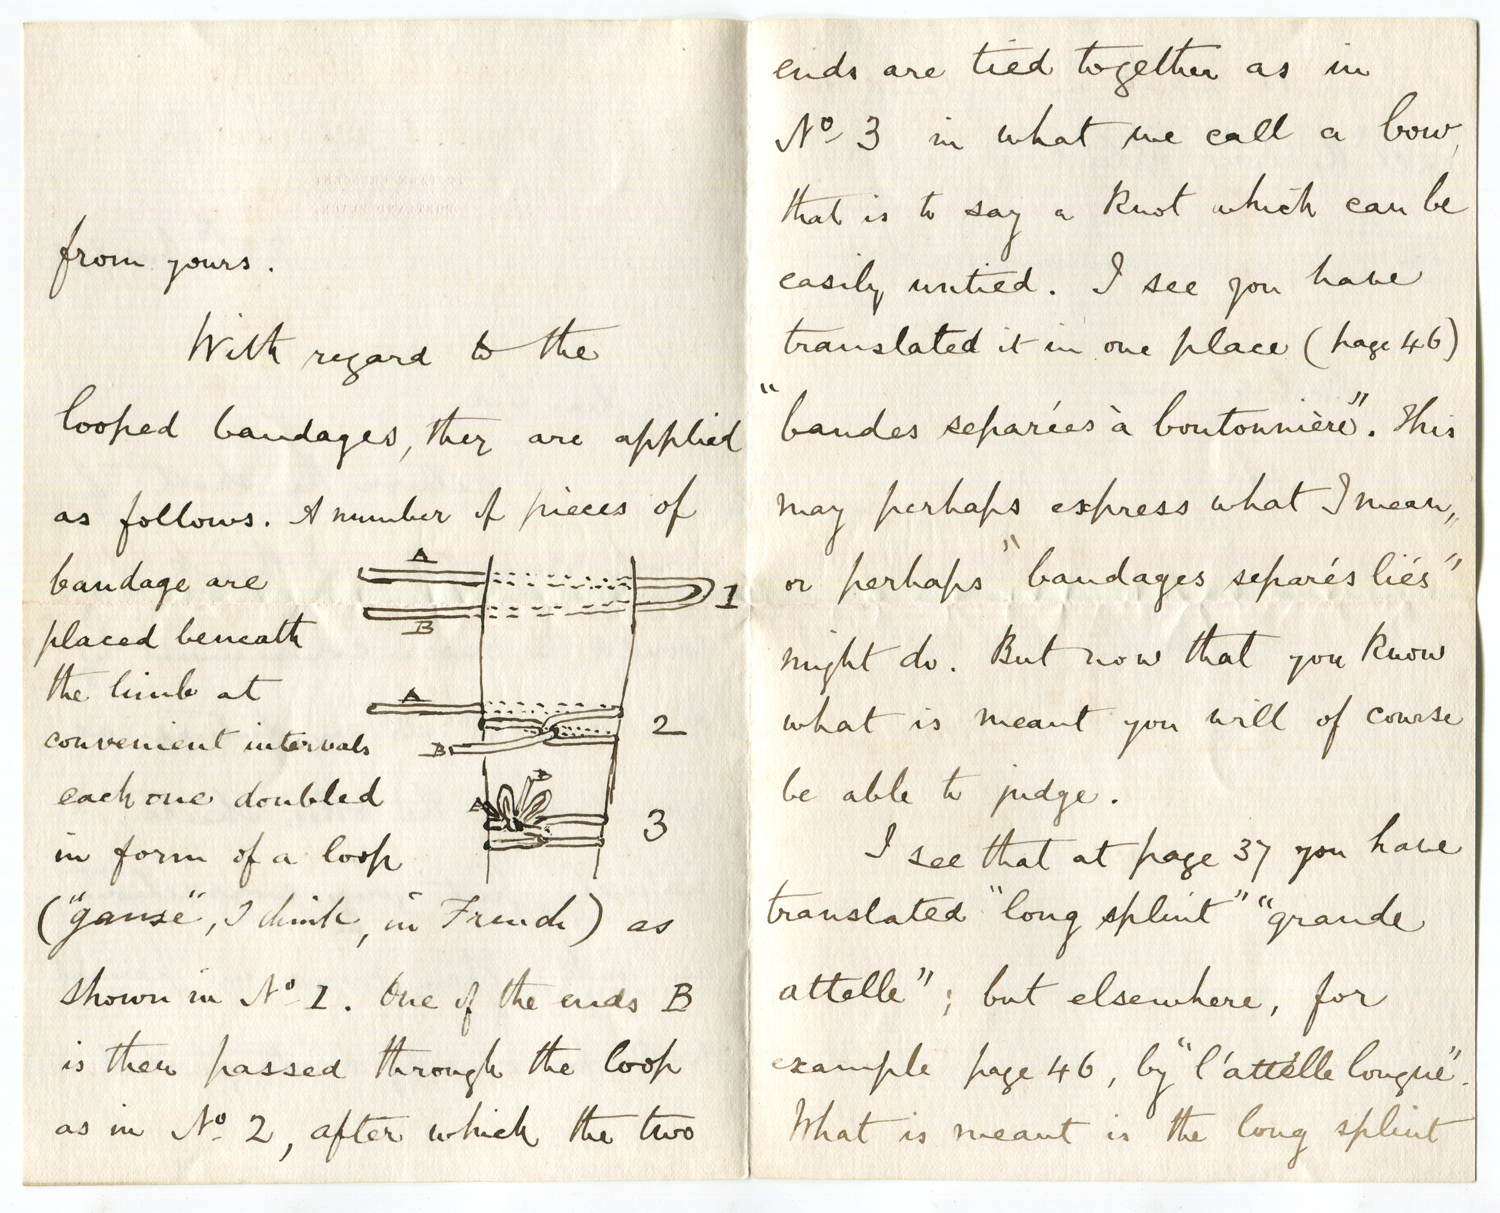 from yours.
With regard to the
looped bandages, they are applied
as follows. A number of pieces of
bandage are
placed beneath
the limb at
convenient intervals
each one doubled
in form of a loop
("ganse", I think, in French) as
shown in No 1. One of the ends B
is then passed through the loop
as in No 2, after which the two
A
B
1
A
B
2
A
B
3
ends are tied together as in
No 3 in what we call a bow,
that is to say a knot which can be
easily untied. I see you have
translated it in one place (page 46)
"bandes separées à boutonnière". This
may perhaps express what I mean,
or perhaps "bandages separés liés"
might do. But now that you know
what is meant you will of course
be able to judge.
I see that at page 37 you have
translated "long splint" "grande
attelle"; but elsewhere, for
example page 46, by "l'attelle longue".
What is meant is the long splint